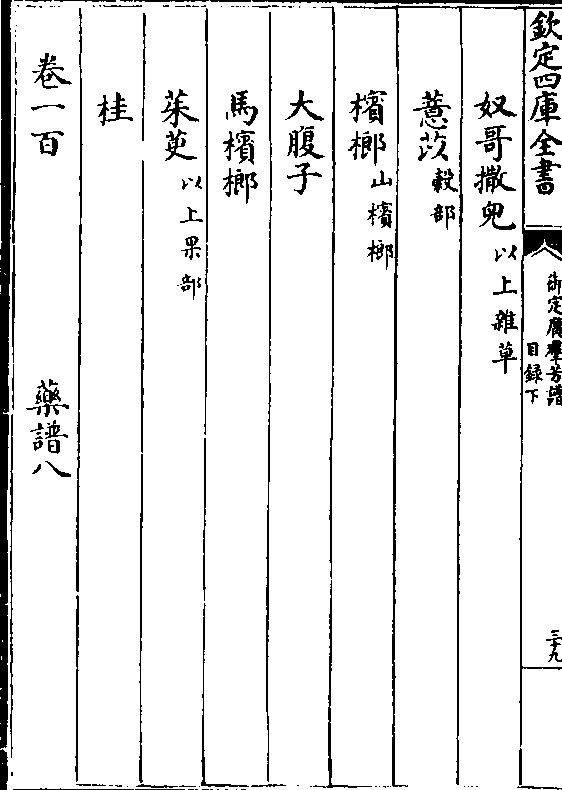 欽定四庫全書
御定廣羣芳譜
目録下
三十九
奴哥撒兒以上雜草
薏苡穀部
檳榔山檳榔
大腹子
馬檳榔
茱萸以上果部
桂
卷一百 藥譜八